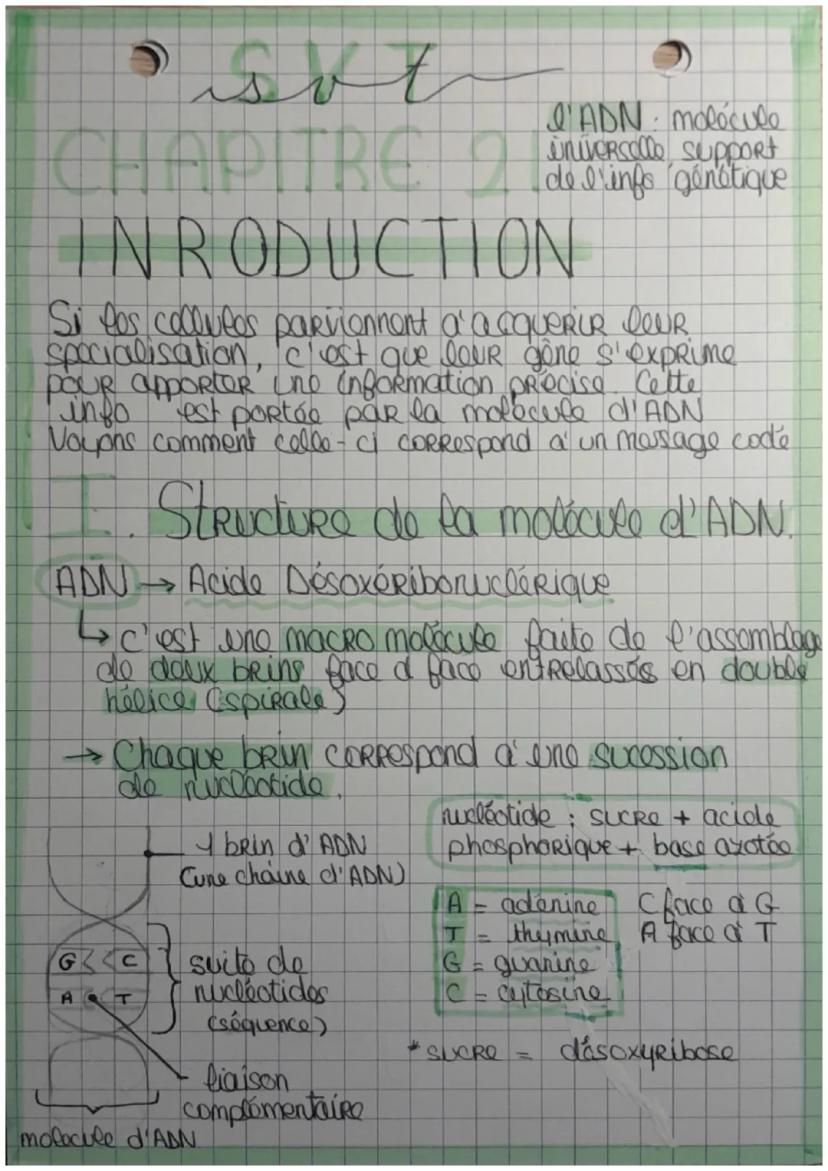 SVT
svt
l'ADN : molécule
universelle, support
de l'info génétique
CHAPITRE 2
INRODUCTION
Si les cellules parviennent à acquerir leur
spécialisation, c'est que leur gène s'exprime
pour apporter une information précise. Cette
info est portée par la molécule d'ADN
Voyons comment celle-ci correspond à un message codé
I. Structure de la molécule d'ADN.
ADN → Acide Désoxéribonuclérique
↳ c'est une macro molécule faite de l'assemblage
de deux brins face à face entrelassés en double
hélice (spirale)
→ Chaque brin correspond à une sucession
de nucléotide.
nucléotide : sucre + acide
phosphorique + base azotée
1 brin d'ADN
(une chaîne d'ADN)
A = adénine
T = thymine
G = guanine
C = cytosine
C face à G
A face à T
G C
A T
suite de
nucléotides
(séquence)
*sucre = désoxyribose
liaison
complémentaire
molécule d'ADN